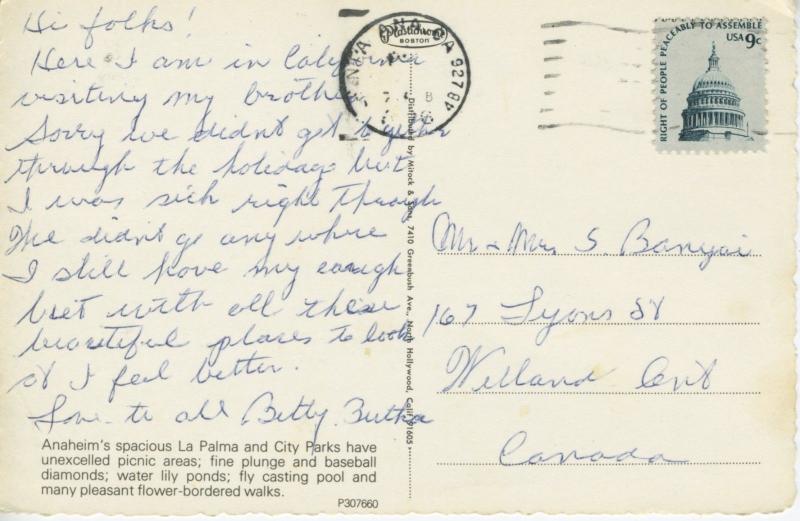 Hi folks!
Here I am in California
visiting my brother
Sorry we didn't get together
through the holidays but
I was sick right through
We didn't go any where
I still have my cough
but with all these
beautiful places to look
at I feel better.
Love to all Betty
Anaheim's spacious La Palma and City Parks have
unexcelled picnic areas; fine plunge and baseball
diamonds; water lily ponds; fly casting pool and
many pleasant flower-bordered walks.
P307660
Plastichrome
BOSTON
SANTA ANA CA 927
Distributed by Mitock & Sons, 7410 Greenbush Ave., North Hollywood, Calif 91605
RIGHT OF PEOPLE PEACEABLY TO ASSEMBLE
USA 9c
Mr & Mrs S. Banyai
167 Lyons St
Welland Ont
Canada